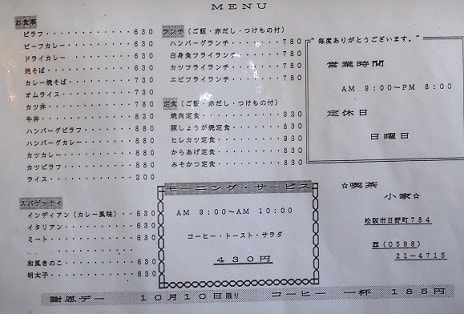 MENU
お食事
ピラフ・・・・・・・・・630
ビーフカレー・・・・・・630
ドライカレー・・・・・・630
焼そば・・・・・・・・・630
カレー焼そば・・・・・・730
オムライス・・・・・・・730
カツ丼・・・・・・・・・780
牛丼・・・・・・・・・・830
ハンバーグピラフ・・・・880
ハンバーグカレー・・・・880
カツカレー・・・・・・・880
カツピラフ・・・・・・・880
ライス・・・・・・・・・200
スパゲッティ
インディアン(カレー風味)・・630
イタリアン・・・・・・・630
ミート・・・・・・・・・630
和風きのこ・・・・・・・630
明太子・・・・・・・・・630
ランチ(ご飯・赤だし・つけもの付)
ハンバーグランチ・・・・780
白身魚フライランチ・・・780
カツフライランチ・・・・780
エビフライランチ・・・・780
定食(ご飯・赤だし・つけもの付)
焼肉定食・・・・・・・・930
豚しょうが焼定食・・・・930
ヒレカツ定食・・・・・・930
からあげ定食・・・・・・930
みそかつ定食・・・・・・930
モーニング・サービス
AM 8:00〜AM 10:00
コーヒー・トースト・サラダ
430円
"毎度ありがとうございます。"
営業時間
AM 8:00〜PM 8:00
定休日
日曜日
☆喫茶
小家☆
松阪市日野町784
☎(0598)
21-4715
謝恩デー 10月10日限り コーヒー 一杯 185円